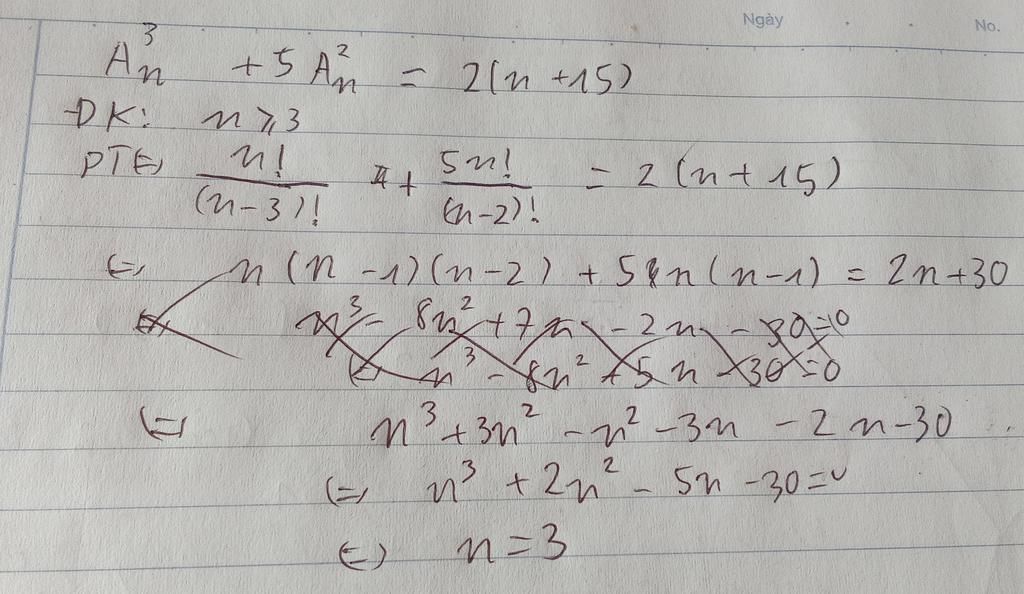 Ngày . . No.
A³ₙ + 5A²ₙ = 2(n+15)
ĐK: n ⩾ 3
PT ⇔ n!/(n-3)! + 5n!/(n-2)! = 2(n+15)
⇔ n(n-1)(n-2) + 5n(n-1) = 2n+30
⇔ n³ - 8n² + 7n - 2n - 30 = 0
⇔ n³ - 8n² + 5n - 30 = 0
⇔ n³ + 3n² - n² - 3n - 2n - 30
⇔ n³ + 2n² - 5n - 30 = 0
⇔ n = 3